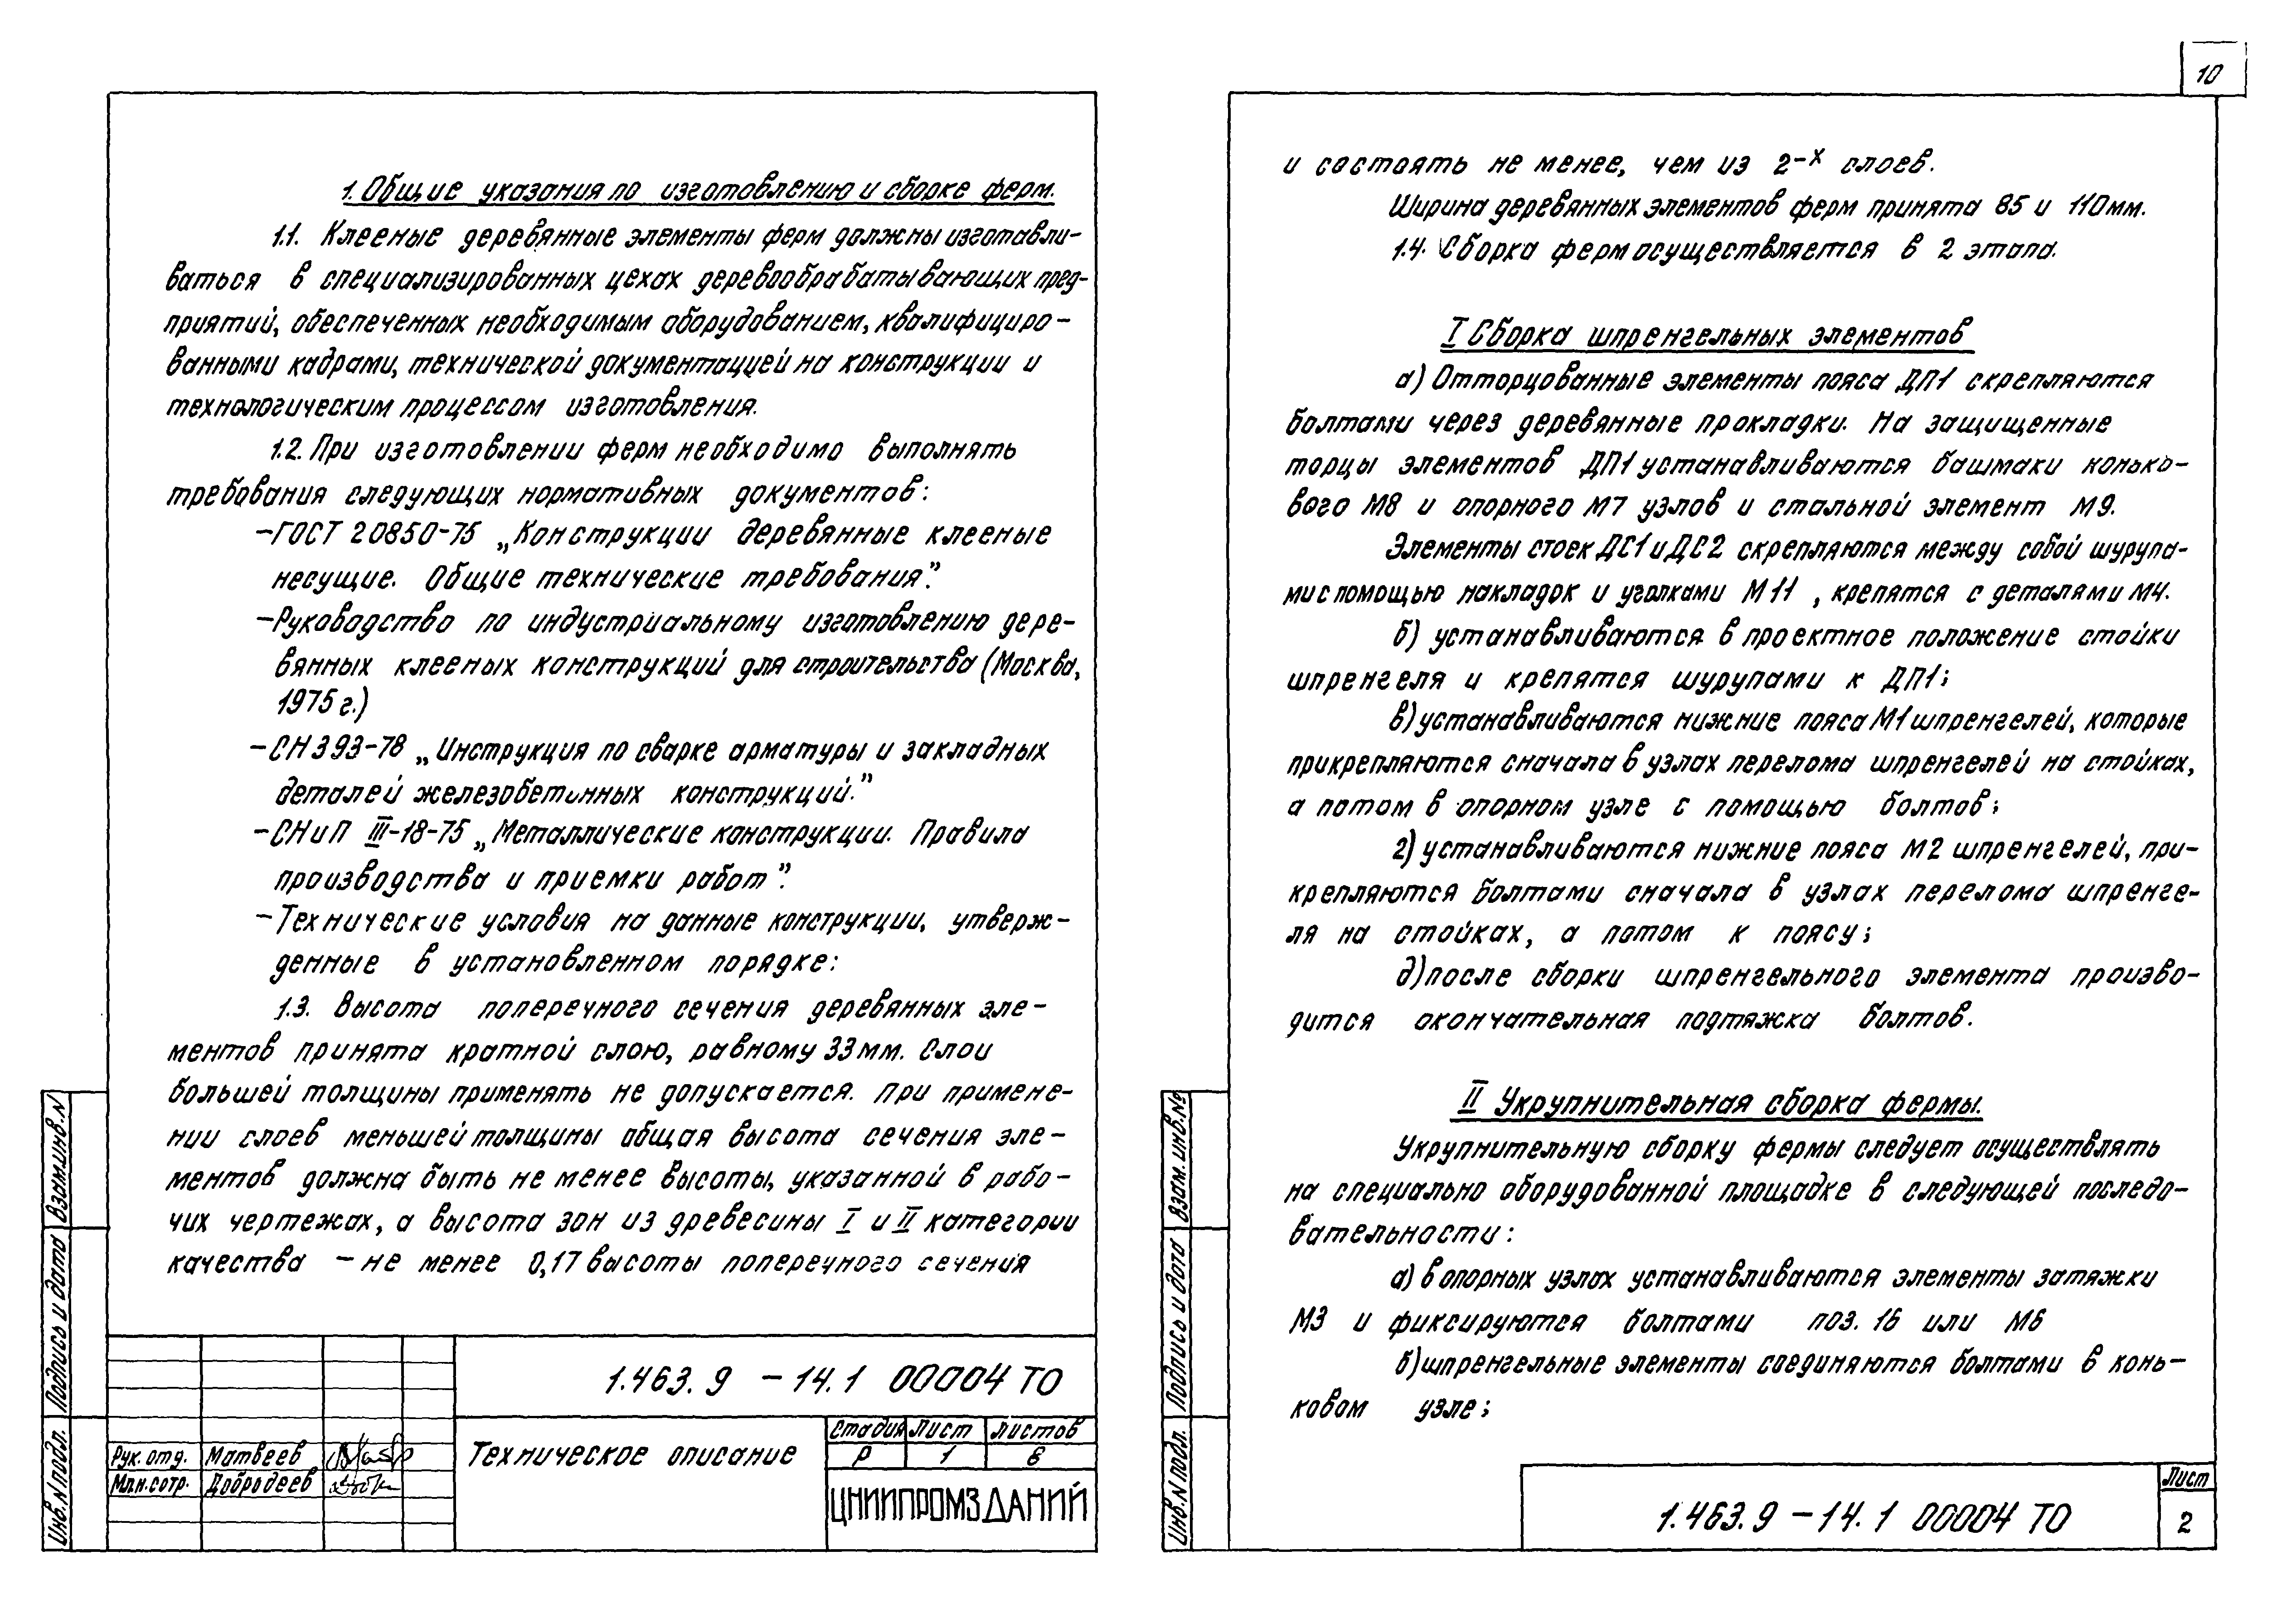 1. Общие указания по изготовлению и сборке ферм.
1.1. Клееные деревянные элементы ферм должны изготавли-
ваться в специализированных цехах деревообрабатывающих пред-
приятий, обеспеченных необходимым оборудованием, квалифициро-
ванными кадрами, технической документацией на конструкции и
технологическим процессом изготовления.
1.2. При изготовлении ферм необходимо выполнять
требования следующих нормативных документов:
-ГОСТ 20850-75 „Конструкции деревянные клееные
несущие. Общие технические требования".
-Руководство по индустриальному изготовлению дере-
вянных клееных конструкций для строительства (Москва,
1975 г.)
-СН 393-78 „Инструкция по сварке арматуры и закладных
деталей железобетонных конструкций."
-СНиП III-18-75 „Металлические конструкции. Правила
производства и приемки работ".
-Технические условия на данные конструкции, утверж-
денные в установленном порядке:
1.3. Высота поперечного сечения деревянных эле-
ментов принята кратной слою, равному 33 мм. Слои
большей толщины применять не допускается. При примене-
нии слоев меньшей толщины общая высота сечения эле-
ментов должна быть не менее высоты, указанной в рабо-
чих чертежах, а высота зон из древесины I и II категории
качества - не менее 0,17 высоты поперечного сечения
1.463.9 - 14.1 00004 ТО
Рук. отд. Матвеев
Мл.н.сотр. Добродеев
Техническое описание
Стадия Лист Листов
Р 1 8
ЦНИИПРОМЗДАНИЙ
Взам.инв.N
Подпись и дата
Инв.N подл.
10
и состоять не менее, чем из 2-х слоев.
Ширина деревянных элементов ферм принята 85 и 110 мм.
1.4. Сборка ферм осуществляется в 2 этапа.
I Сборка шпренгельных элементов
а) Отторцованные элементы пояса ДП1 скрепляются
болтами через деревянные прокладки. На защищенные
торцы элементов ДП1 устанавливаются башмаки конько-
вого М8 и опорного М7 узлов и стальной элемент М9.
Элементы стоек ДС1 и ДС2 скрепляются между собой шурупа-
ми с помощью накладок и уголками М11 , крепятся с деталями М4.
б) устанавливаются в проектное положение стойки
шпренгеля и крепятся шурупами к ДП1;
в) устанавливаются нижние пояса М1 шпренгелей, которые
прикрепляются сначала в узлах перелома шпренгелей на стойках,
а потом в опорном узле с помощью болтов;
г) устанавливаются нижние пояса М2 шпренгелей, при-
крепляются болтами сначала в узлах перелома шпренге-
ля на стойках, а потом к поясу;
д) после сборки шпренгельного элемента произво-
дится окончательная подтяжка болтов.
II Укрупнительная сборка фермы.
Укрупнительную сборку фермы следует осуществлять
на специально оборудованной площадке в следующей последо-
вательности:
а) в опорных узлах устанавливаются элементы затяжки
М3 и фиксируются болтами поз. 16 или М6
б) шпренгельные элементы соединяются болтами в конь-
ковом узле;
1.463.9 - 14.1 00004 ТО
Лист
2
Взам.инв.№
Подпись и дата
Инв.N подл.